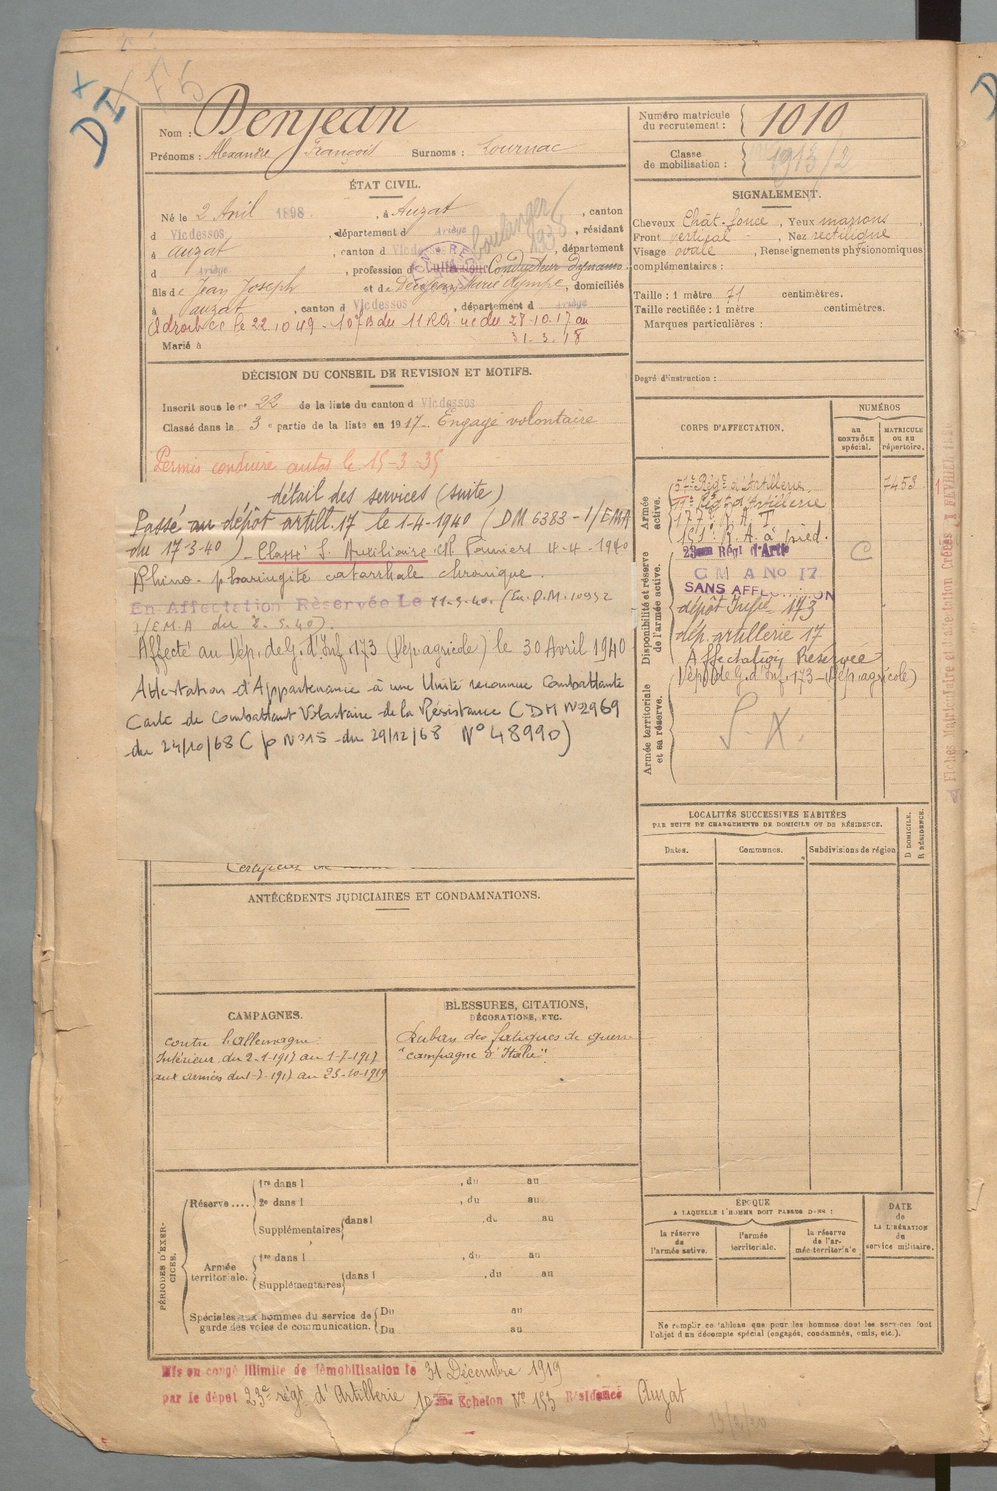 DIX
Nom : Denjean
Prénoms : Alexandre François Surnoms : Lournac
Numéro matricule du recrutement : 1010
Classe de mobilisation : 1913/2
ÉTAT CIVIL.
Né le 2 Avril 1898, à Auzat, canton
d Vicdessos, département d Ariège, résidant
à Auzat, canton d Vicdessos, département
d Ariège, profession de Cultivateur Conducteur Dynamo
Boulanger 1938
fils de Jean Joseph et de Denjean Marie Olympe, domiciliés
à Auzat, canton d Vicdessos, département d Ariège
A droit CC le 22.10.49 - 107 B du 11 RA du 28.10.17 au
31.3.18
Marié à
SIGNALEMENT.
Cheveux Chât. foncé, Yeux marrons
Front vertical, Nez rectiligne
Visage ovale, Renseignements physionomiques
complémentaires :
Taille : 1 mètre 71 centimètres.
Taille rectifiée : 1 mètre centimètres.
Marques particulières :
Degré d'instruction :
DÉCISION DU CONSEIL DE REVISION ET MOTIFS.
Inscrit sous le n° 22 de la liste du canton d Vicdessos
Classé dans la 3e partie de la liste en 1917. Engagé volontaire
Permis conduire autos le 15-3-35
détail des services (suite)
Passé au dépôt artill. 17 le 1-4-1940 (DM 6383 - 1/EMA
du 17-3-40) - Classé S. Auxiliaire CR Pamiers 4-4-1940
Rhino-pharingite catarrhale chronique.
En Affectation Réservée Le 11-5-40. (En. D.M. 10952
1/EM.A du 2.5.40).
Affecté au Dép. de G. d'Inf. 173 (Dép. agricole) le 30 Avril 1940
Attestation d'Appartenance à une Unité reconnue Combattante
Carte de Combattant Volontaire de la Résistance (DM N° 2969
du 24/10/68 (p N° 15 du 29/12/68 N° 48990)
CORPS D'AFFECTATION.
NUMÉROS
AU CONTRÔLE SPÉCIAL.
MATRICULE OU AU RÉPERTOIRE.
Armée active.
57e Régt d'Artillerie 7453
11e Régt d'Artillerie
177e R.A.T.
151e R.A. à pied.
Disponibilité et réserve de l'armée active.
23ème Régt d'Artie C
C M A No 17
SANS AFFECTATION
dépôt Infie 173
dép. artillerie 17
Affectation Réservée
Dépôt de G. d'Inf. 173 - (Dép. agricole)
Armée territoriale et sa réserve.
S. X.
LOCALITÉS SUCCESSIVES HABITÉES
PAR SUITE DE CHANGEMENTS DE DOMICILE OU DE RÉSIDENCE.
Dates. Communes. Subdivisions de région D DOMICILE. R RÉSIDENCE.
ANTÉCÉDENTS JUDICIAIRES ET CONDAMNATIONS.
CAMPAGNES.
contre l'allemagne.
Intérieur du 2-1-1917 au 1-7-1917
aux armées du 1-7-1917 au 23-10-1919
BLESSURES, CITATIONS,
DÉCORATIONS, ETC.
Ruban des fatigues de guerre
"campagne d'Italie"
PÉRIODES D'EXERCICES.
Réserve....
1re dans l , du au
2e dans l , du au
Supplémentaires dans l , du au
Armée territoriale.
1re dans l , du au
Supplémentaires dans l , du au
Spéciales aux hommes du service de garde des voies de communication.
Du au
Du au
ÉPOQUE
A LAQUELLE L'HOMME DOIT PASSER DANS :
la réserve de l'armée active.
l'armée territoriale.
la réserve de l'armée territoriale
DATE de LA LIBÉRATION du service militaire.
Ne remplir ce tableau que pour les hommes dont les services font
l'objet d'un décompte spécial (engagés, condamnés, omis, etc.).
Mis en congé illimité de démobilisation le 31 Décembre 1919
par le dépôt 23e régt d'Artillerie 10ème Echelon N° 153 Résidence Auzat